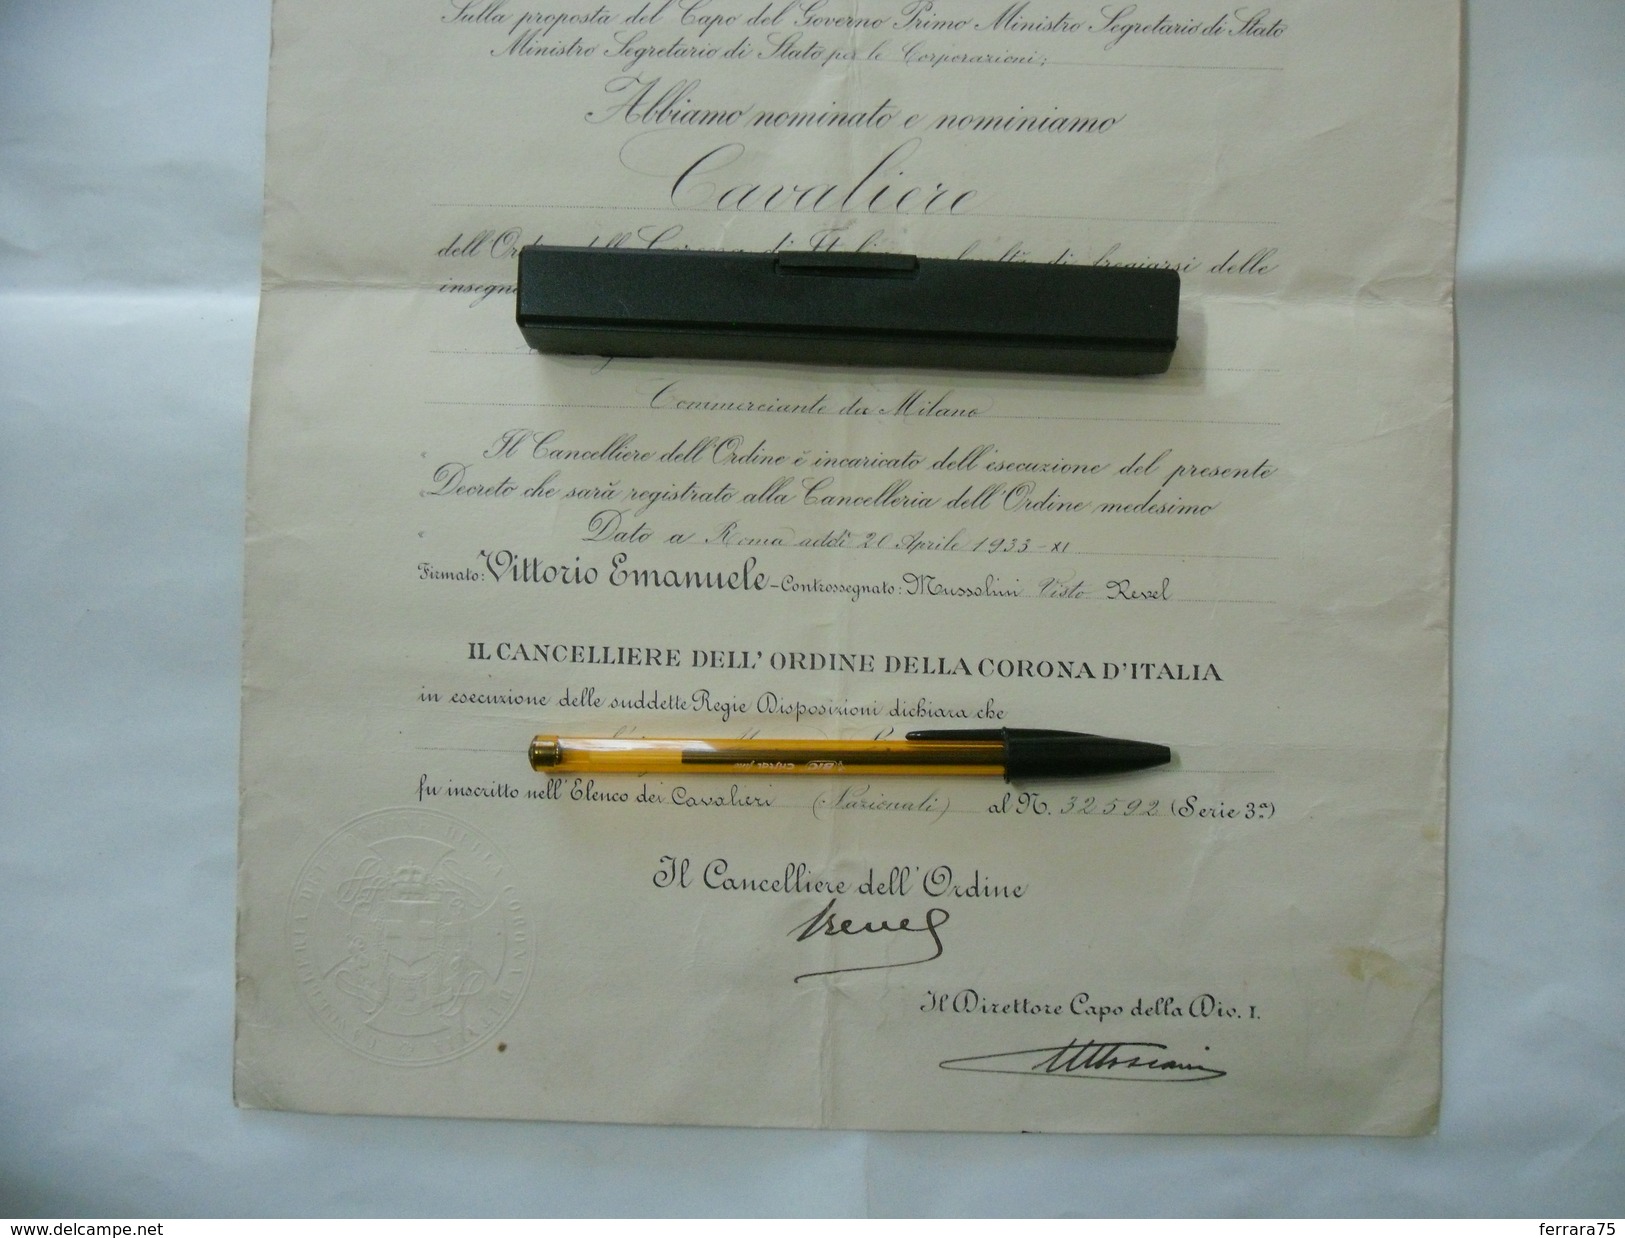 Sulla proposta del Capo del Governo Primo Ministro Segretario di Stato
Ministro Segretario di Stato per le Corporazioni;
Abbiamo nominato e nominiamo
Cavaliere
dell'Or di fregiarsi delle
insegn
Commerciante da Milano
Il Cancelliere dell'Ordine è incaricato dell'esecuzione del presente
Decreto che sarà registrato alla Cancelleria dell'Ordine medesimo
Dato a Roma addì 20 Aprile 1933-XI
Firmato: Vittorio Emanuele - Controssegnato: Mussolini Visto Revel
IL CANCELLIERE DELL'ORDINE DELLA CORONA D'ITALIA
in esecuzione delle suddette Regie Disposizioni dichiara che
BIC Cristal fine
fu inscritto nell'Elenco dei Cavalieri (Nazionali) al N. 32592 (Serie 3ª)
Il Cancelliere dell'Ordine
Revel
Il Direttore Capo della Div. I.
www.delcampe.net
ferrara75